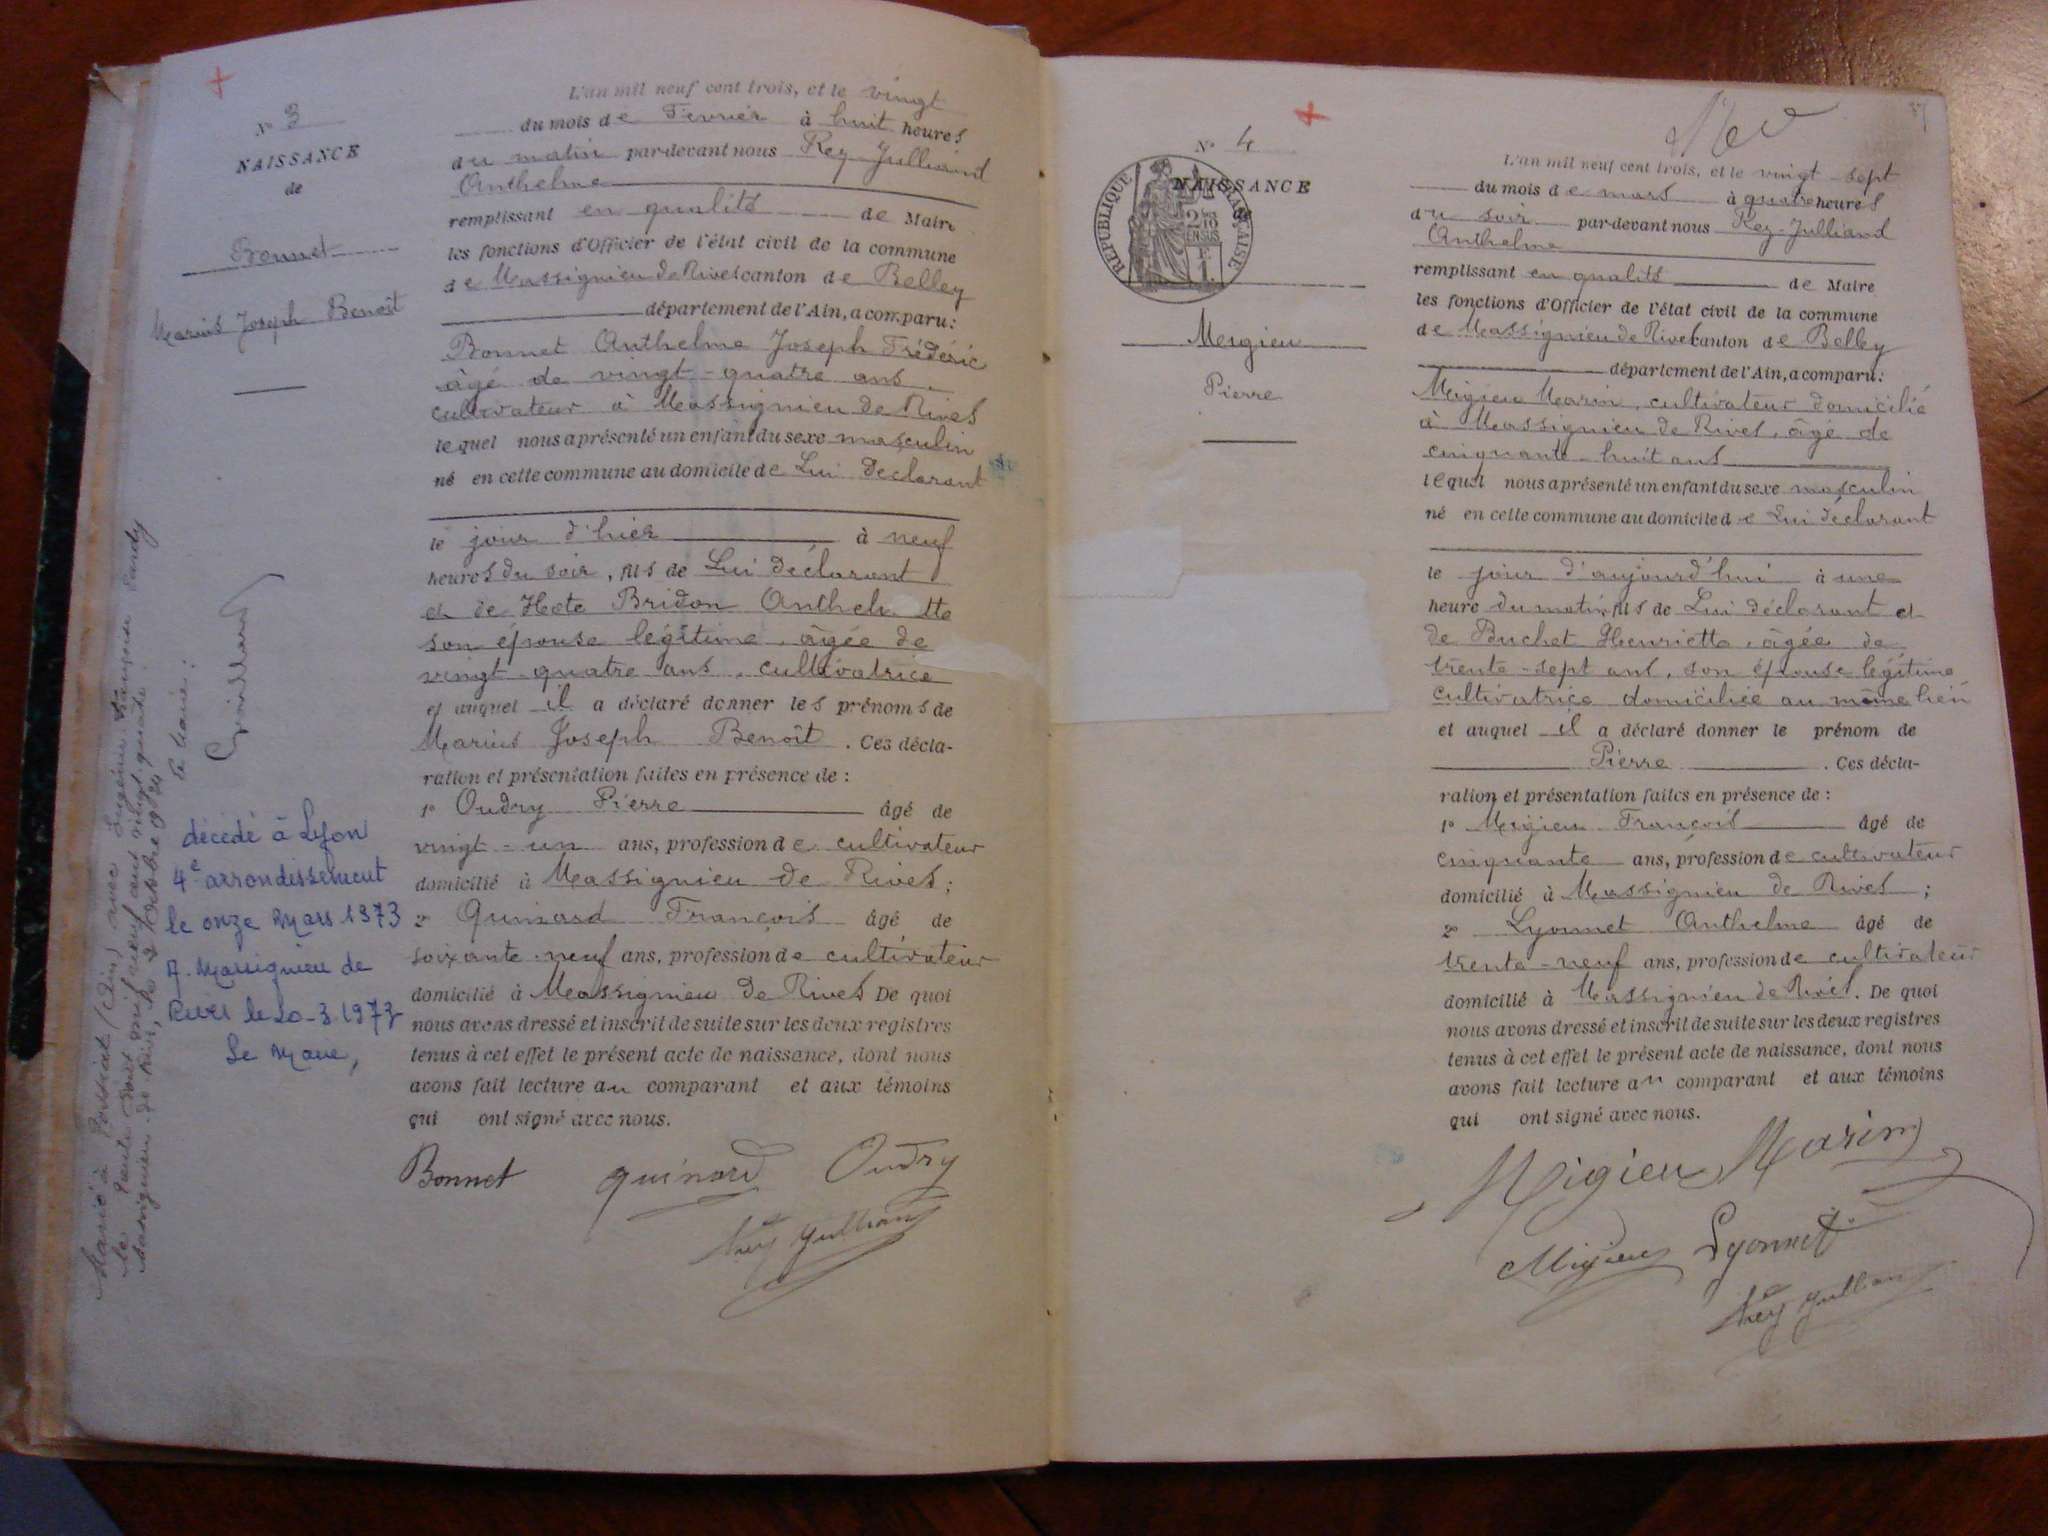 N° 3
NAISSANCE
de
Bonnet
Marius Joseph Benoît
L'an mil neuf cent trois, et le vingt
du mois de Fevrier à huit heures
du matin par-devant nous Rey-Julliand
Anthelme
remplissant en qualité de Maire
les fonctions d'Officier de l'état civil de la commune
de Massignieu de Rives canton de Belley
département de l'Ain, a comparu:
Bonnet Anthelme Joseph Frédéric
âgé de vingt-quatre ans,
cultivateur à Massignieu de Rives
lequel nous a présenté un enfant du sexe masculin
né en cette commune au domicile de Lui Declarant
le jour d'hier à neuf
heures du soir, fils de Lui Déclarant
et de Hote Bridon
son épouse légitime, âgée de
vingt quatre ans, cultivatrice
et auquel il a déclaré donner les prénoms de
Marius Joseph Benoît. Ces décla-
ration et présentation faites en présence de :
1° Oudry Pierre âgé de
vingt-un ans, profession de cultivateur
domicilié à Massignieu de Rives;
2° Quinard François âgé de
soixante-neuf ans, profession de cultivateur
domicilié à Massignieu de Rives De quoi
nous avons dressé et inscrit de suite sur les deux registres
tenus à cet effet le présent acte de naissance, dont nous
avons fait lecture au comparant et aux témoins
qui ont signé avec nous.
Bonnet quinard Oudry
Rey Julliand
Marié à (Ain) avec
le trente mil neuf cent vingt quatre
Massignieu de Rives, le 2 Octobre 1924
Le Maire :
décédé à Lyon
4e arrondissement
le onze Mars 1973
A. Massignieu de
Rives le 20-3.1973
Le Maire,
N° 4
NAISSANCE
de
RÉPUBLIQUE FRANÇAISE
2/10
EN SUS
F.
1.
Meigieu
Pierre
L'an mil neuf cent trois, et le vingt-sept
du mois de mars à quatre heures
du soir par-devant nous Rey-Julliand
Anthelme
remplissant en qualité de Maire
les fonctions d'Officier de l'état civil de la commune
de Massignieu de Rives canton de Belley
département de l'Ain, a comparu:
Migieu Marin, cultivateur domicilié
à Massignieu de Rives, âgé de
cinquante-huit ans
lequel nous a présenté un enfant du sexe masculin
né en cette commune au domicile de Lui déclarant
le jour d'aujourd'hui à une
heure du matin, fils de Lui déclarant et
de Buchet Henriette, âgée de
trente-sept ans, son épouse légitime
cultivatrice domiciliée au même lieu
et auquel il a déclaré donner le prénom de
Pierre. Ces décla-
ration et présentation faites en présence de :
1° Migieu François âgé de
cinquante ans, profession de cultivateur
domicilié à Massignieu de Rives ;
2° Lyonnet Anthelme âgé de
trente-neuf ans, profession de cultivateur
domicilié à Massignieu de Rives. De quoi
nous avons dressé et inscrit de suite sur les deux registres
tenus à cet effet le présent acte de naissance, dont nous
avons fait lecture au comparant et aux témoins
qui ont signé avec nous.
Migieu Marin
Migieu Lyonnet
Rey Julliand